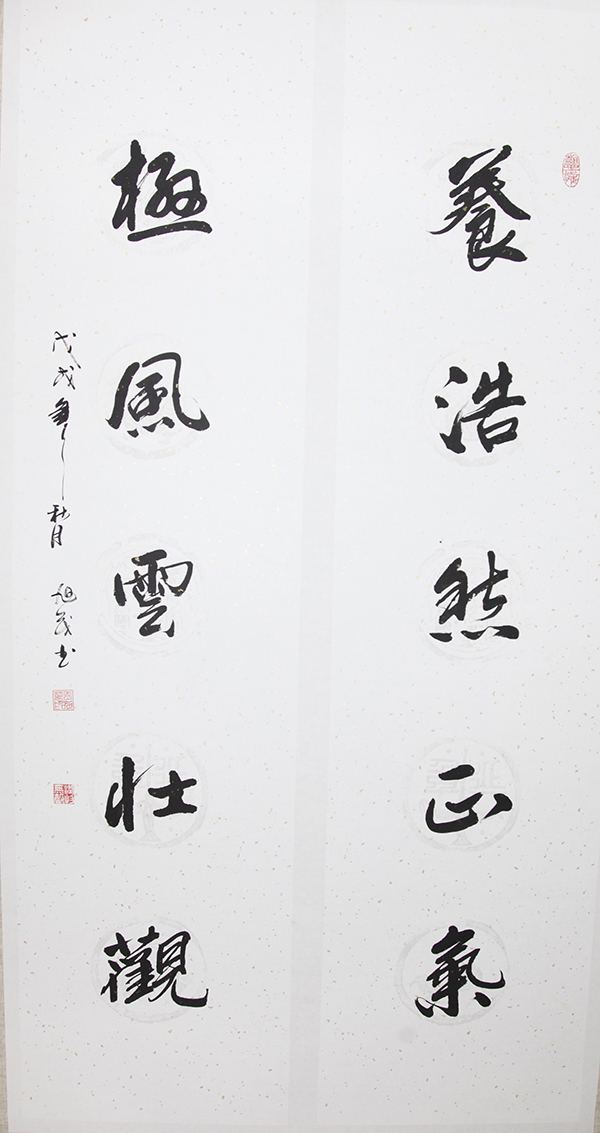 養浩然正氣
極風雲壯觀
戊戌年秋月
旭茂书